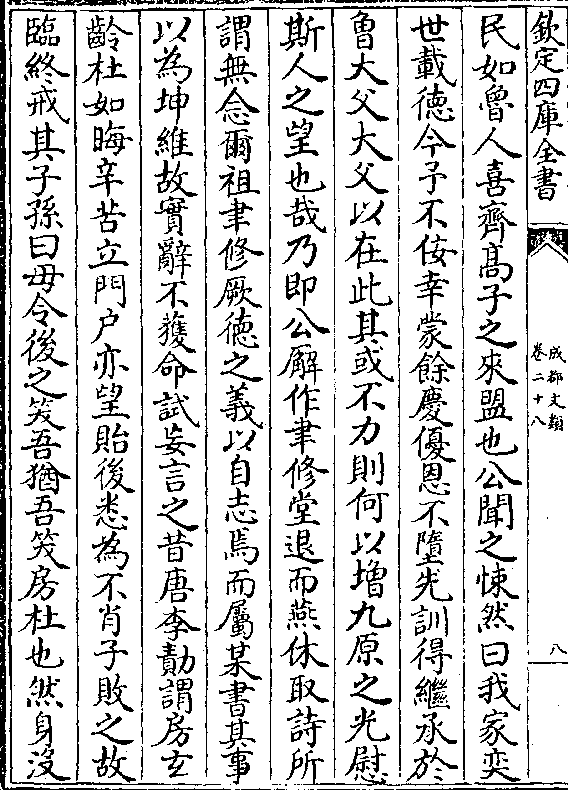 欽定四庫全書
成都文類
卷二十八
八
民如魯人喜齊髙子之來盟也公聞之悚然曰我家奕
世載徳今予不佞幸蒙餘慶優恩不墮先訓得繼承於
魯大父大父以在此其或不力則何以增九原之光慰
斯人之望也哉乃即公廨作聿修堂退而燕休取詩所
謂無念爾祖聿修厥徳之義以自志焉而屬某書其事
以為坤維故實辭不獲命試妄言之昔唐李勣謂房𤣥
齡杜如晦辛苦立門户亦望貽後悉為不肖子敗之故
臨終戒其子孫曰毋令後之笑吾猶吾笑房杜也然身沒